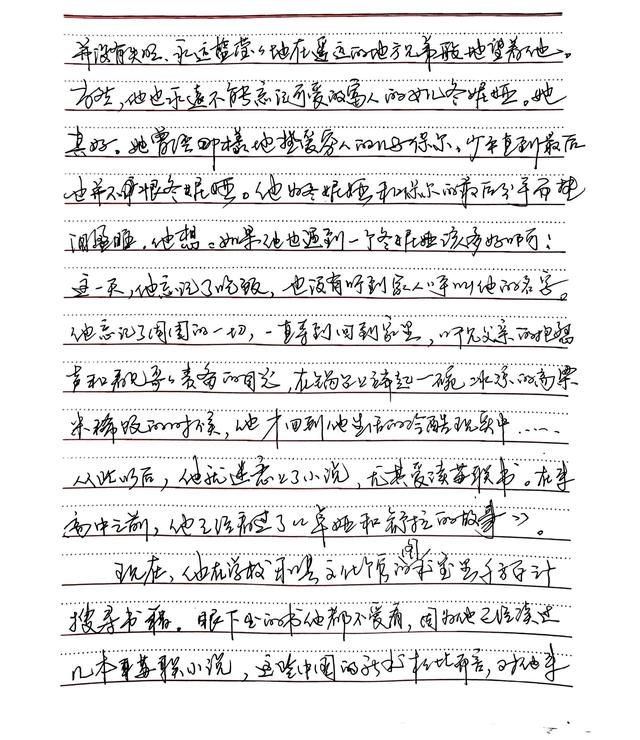 并没有失明、永远莹莹地在遥远的地方兄弟般地望着他。
当然,他也永远不能忘记可爱的富人的女儿冬妮娅。她
真好。她曾经那样地热爱穷人的儿子保尔。少平直到最后
也并不恨冬妮娅。他为冬妮娅和保尔的最后分手而热
泪盈眶。他想:如果他也遇到一个冬妮娅该多好啊!
这一天,他忘记了吃饭,也没有听到家人呼叫他的名字。
他忘记了周围的一切,一直等到回到家里,听见父亲的抱怨
声和看见哥哥责备的目光,在锅台上端起一碗冰凉的高粱
米稀饭的时候,他才回到他生活的冷酷现实中……
从此以后,他就迷恋上了小说,尤其爱读苏联书。在来
高中之前,他已经看过了《卓娅和舒拉的故事》。
现在,他在学校和县文化馆的图书室里千方百计
搜寻书籍。眼下出的书他都不爱看,因为他已经读过
几本苏联小说,这些中国的新书相比而言,对他来